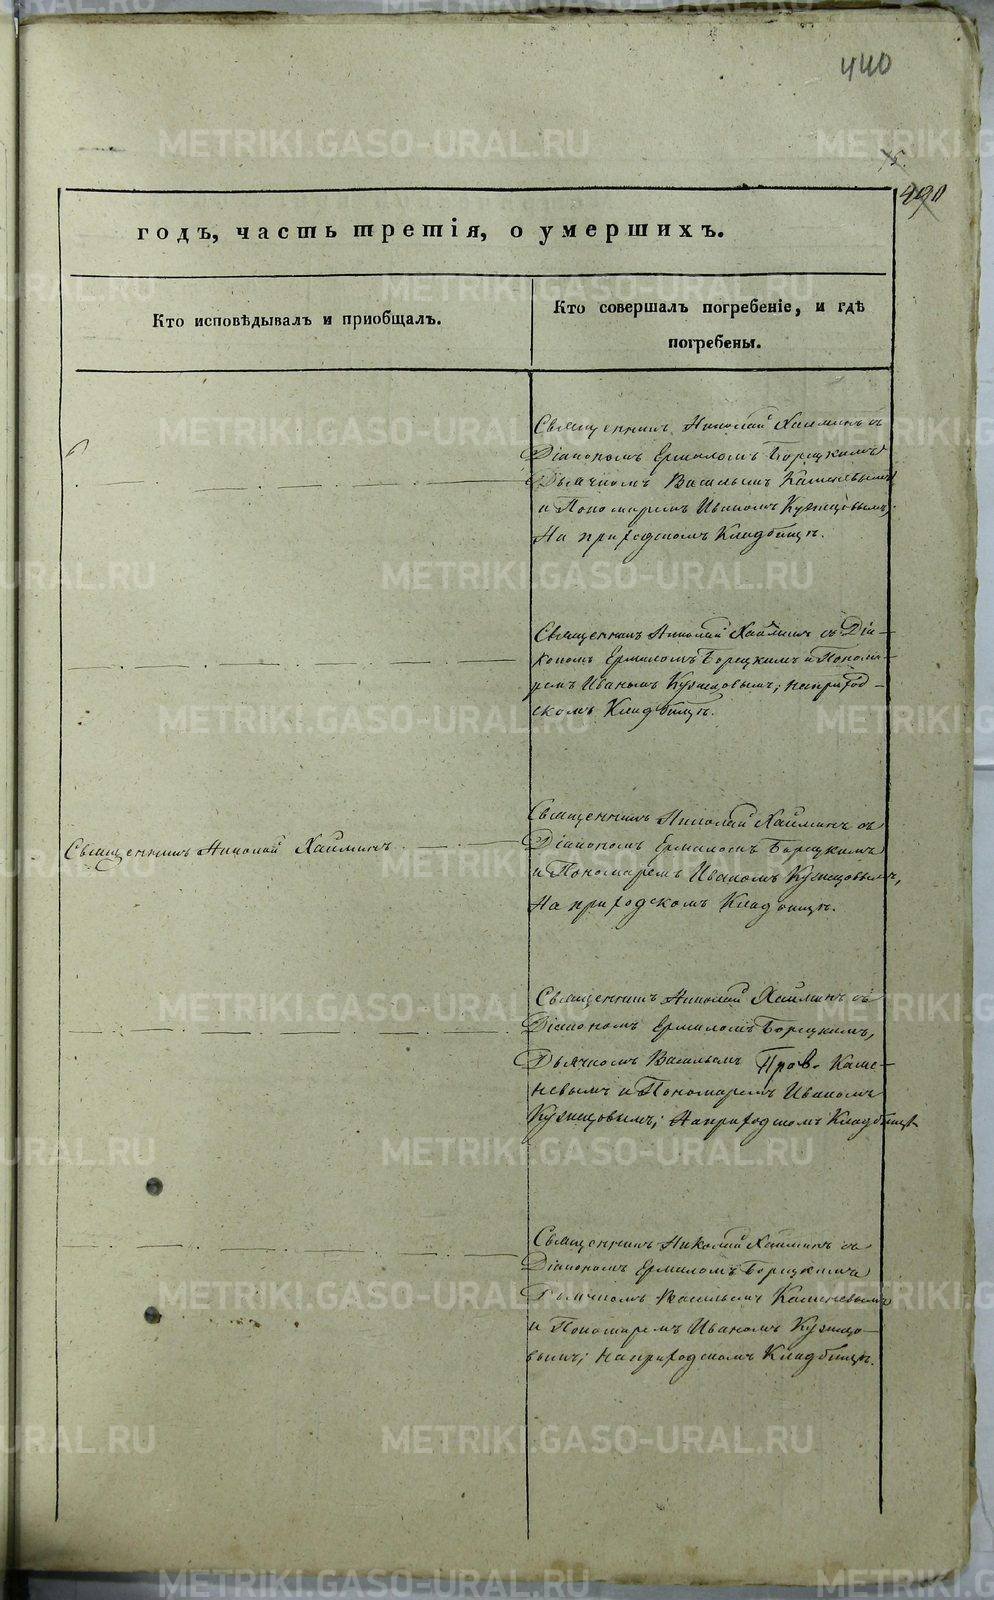 440
годъ, часть третія, о умершихъ.
Кто исповѣдывалъ и приобщалъ.
Кто совершалъ погребеніе, и гдѣ
погребены.
Священникъ Николай Хайминъ съ
Діакономъ Ермиломъ Борецкимъ
Дьячкомъ Васильемъ Каменевымъ
и Пономаремъ Иваномъ Кузнецовымъ;
На приходскомъ Кладбищѣ.
Священникъ Николай Хайминъ съ Діа-
кономъ Ермиломъ Борецкимъ и Понома-
ремъ Иваномъ Кузнецовымъ; на приход-
скомъ Кладбищѣ.
Священникъ Николай Хайминъ
Священникъ Николай Хайминъ съ
Діакономъ Ермиломъ Борецкимъ
и Пономаремъ Иваномъ Кузнецовымъ,
На приходскомъ Кладбищѣ.
Священникъ Николай Хайминъ съ
Діакономъ Ермиломъ Борецкимъ,
Дьячкомъ Васильемъ Пров. Каме-
невымъ и Пономаремъ Иваномъ
Кузнецовымъ; На приходскомъ Кладбищѣ
Священникъ Николай Хайминъ съ
Діакономъ Ермиломъ Борецкимъ
Дьячкомъ Васильемъ Каменевымъ
и Пономаремъ Иваномъ Кузнецо-
вымъ; На приходскомъ Кладбищѣ.
METRIKI.GASO-URAL.RU